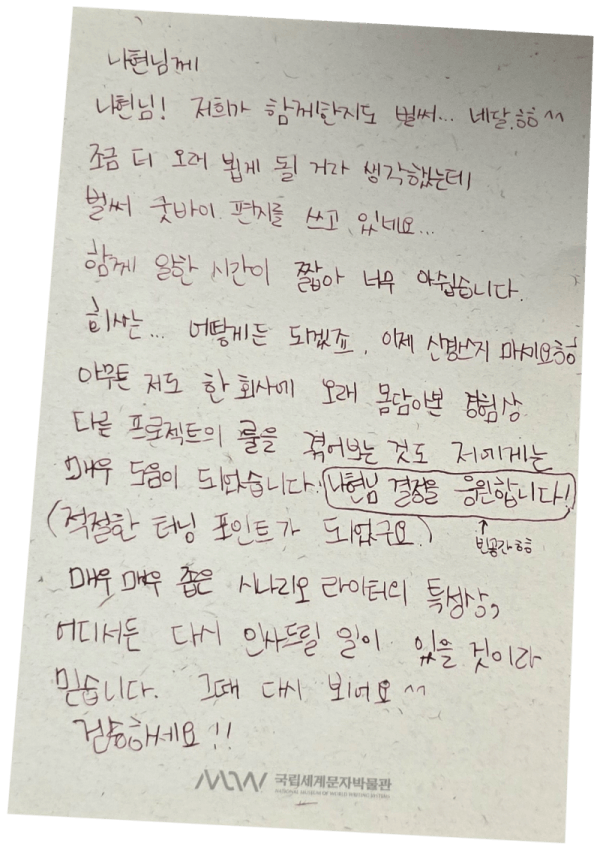 나현님께
나현님! 저희가 함께한지도 벌써... 네달.ㅎㅎ^^
조금 더 오래 뵙게 될 거라 생각했는데
벌써 굿바이 편지를 쓰고 있네요...
함께 일한 시간이 짧아 너무 아쉽습니다.
회사는... 어떻게든 되겠죠, 이제 신경쓰지 마세요ㅎㅎ
아무튼 저도 한 회사에 오래 몸담아본 경험상
다른 프로젝트의 룰을 겪어보는 것도 저에게는
매우 도움이 되었습니다. 나현님 결정을 응원합니다!
(적절한 터닝 포인트가 되었구요.) ↑ 빈공간ㅎㅎ
매우 매우 좁은 시나리오 라이터의 특성상,
어디서든 다시 인사드릴 일이 있을 것이라
믿습니다. 그때 다시 뵈어요^^
건승하세요!!
MOW 국립세계문자박물관
NATIONAL MUSEUM OF WORLD WRITING SYSTEMS